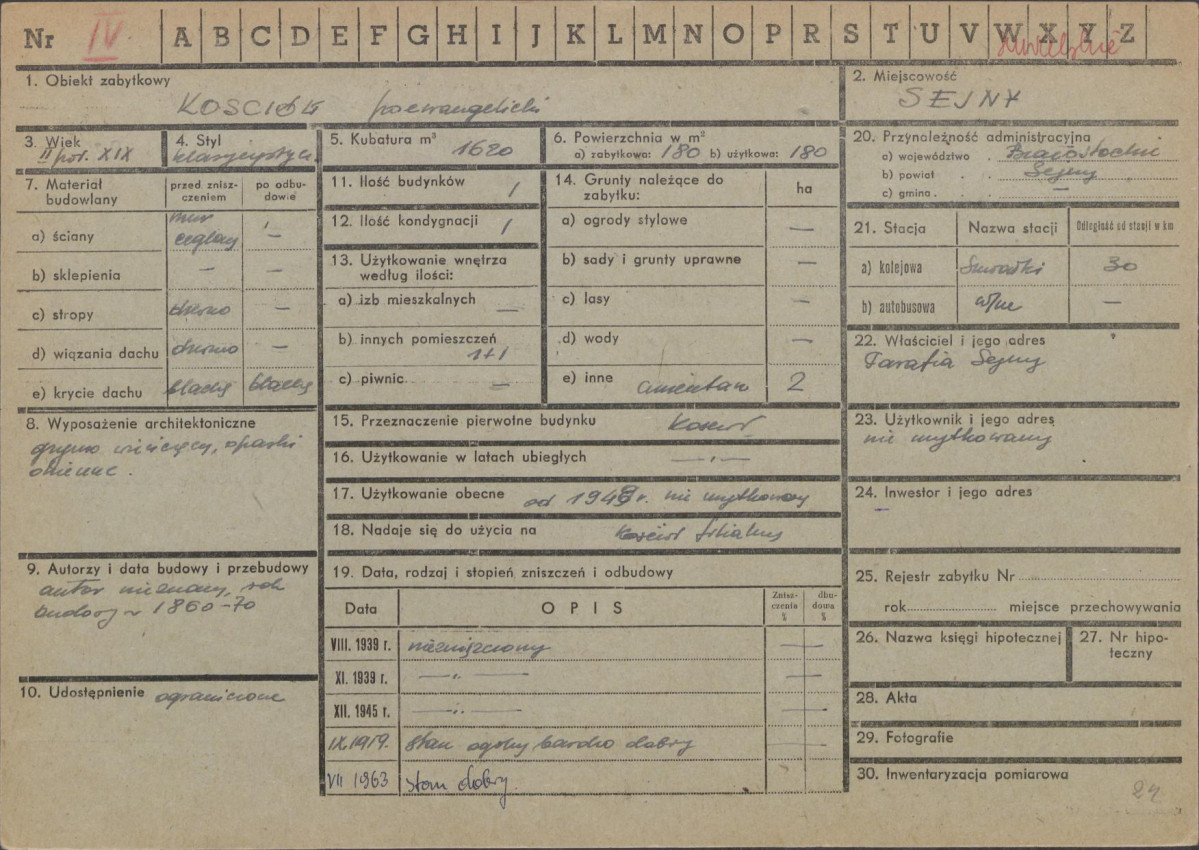 Nr IV A B C D E F G H I J K L M N O P R S T U V W X Y Z
1. Obiekt zabytkowy
KOSCIÓŁ poewangelicki
2. Miejscowość
SEJNY
3. Wiek
II poł. XIX
4. Styl
klasycystycz.
5. Kubatura m³ 1620
6. Powierzchnia w m²
a) zabytkowa: 180 b) użytkowa: 180
7. Materiał budowlany
przed zniszczeniem
po odbudowie
a) ściany mur ceglany —
b) sklepienia — —
c) stropy drewno —
d) wiązania dachu drewno —
e) krycie dachu blachy blachy
8. Wyposażenie architektoniczne
gzyms wieńczący, opaski
okienne.
9. Autorzy i data budowy i przebudowy
autor nieznany, rok
budowy ~ 1860-70
10. Udostępnienie ograniczone
11. Ilość budynków 1
12. Ilość kondygnacji 1
13. Użytkowanie wnętrza
według ilości:
a) izb mieszkalnych —
b) innych pomieszczeń
1+1
c) piwnic —
14. Grunty należące do
zabytku: ha
a) ogrody stylowe —
b) sady i grunty uprawne —
c) lasy —
d) wody —
e) inne cmentarz 2
15. Przeznaczenie pierwotne budynku Kościół
16. Użytkowanie w latach ubiegłych —„—
17. Użytkowanie obecne od 1948 r. nie użytkowany
18. Nadaje się do użycia na kościół filialny
19. Data, rodzaj i stopień zniszczeń i odbudowy
Data OPIS Zniszczenia % dbudowa %
VIII. 1939 r. niezniszczony — —
XI. 1939 r. —„— —
XII. 1945 r. —„— —
IX.1919. Stan ogólny bardzo dobry —
VII 1963 stan dobry.
20. Przynależność administracyjna
a) województwo . Białostockie
b) powiat . . Sejny
c) gmina . —
21. Stacja Nazwa stacji Odległość od stacji w km
a) kolejowa Suwałki 30
b) autobusowa w/m —
22. Właściciel i jego adres
Parafia Sejny
23. Użytkownik i jego adres
nie użytkowany
24. Inwestor i jego adres
—
25. Rejestr zabytku Nr
rok miejsce przechowywania
26. Nazwa księgi hipotecznej
27. Nr hipoteczny
28. Akta
29. Fotografie
30. Inwentaryzacja pomiarowa
24